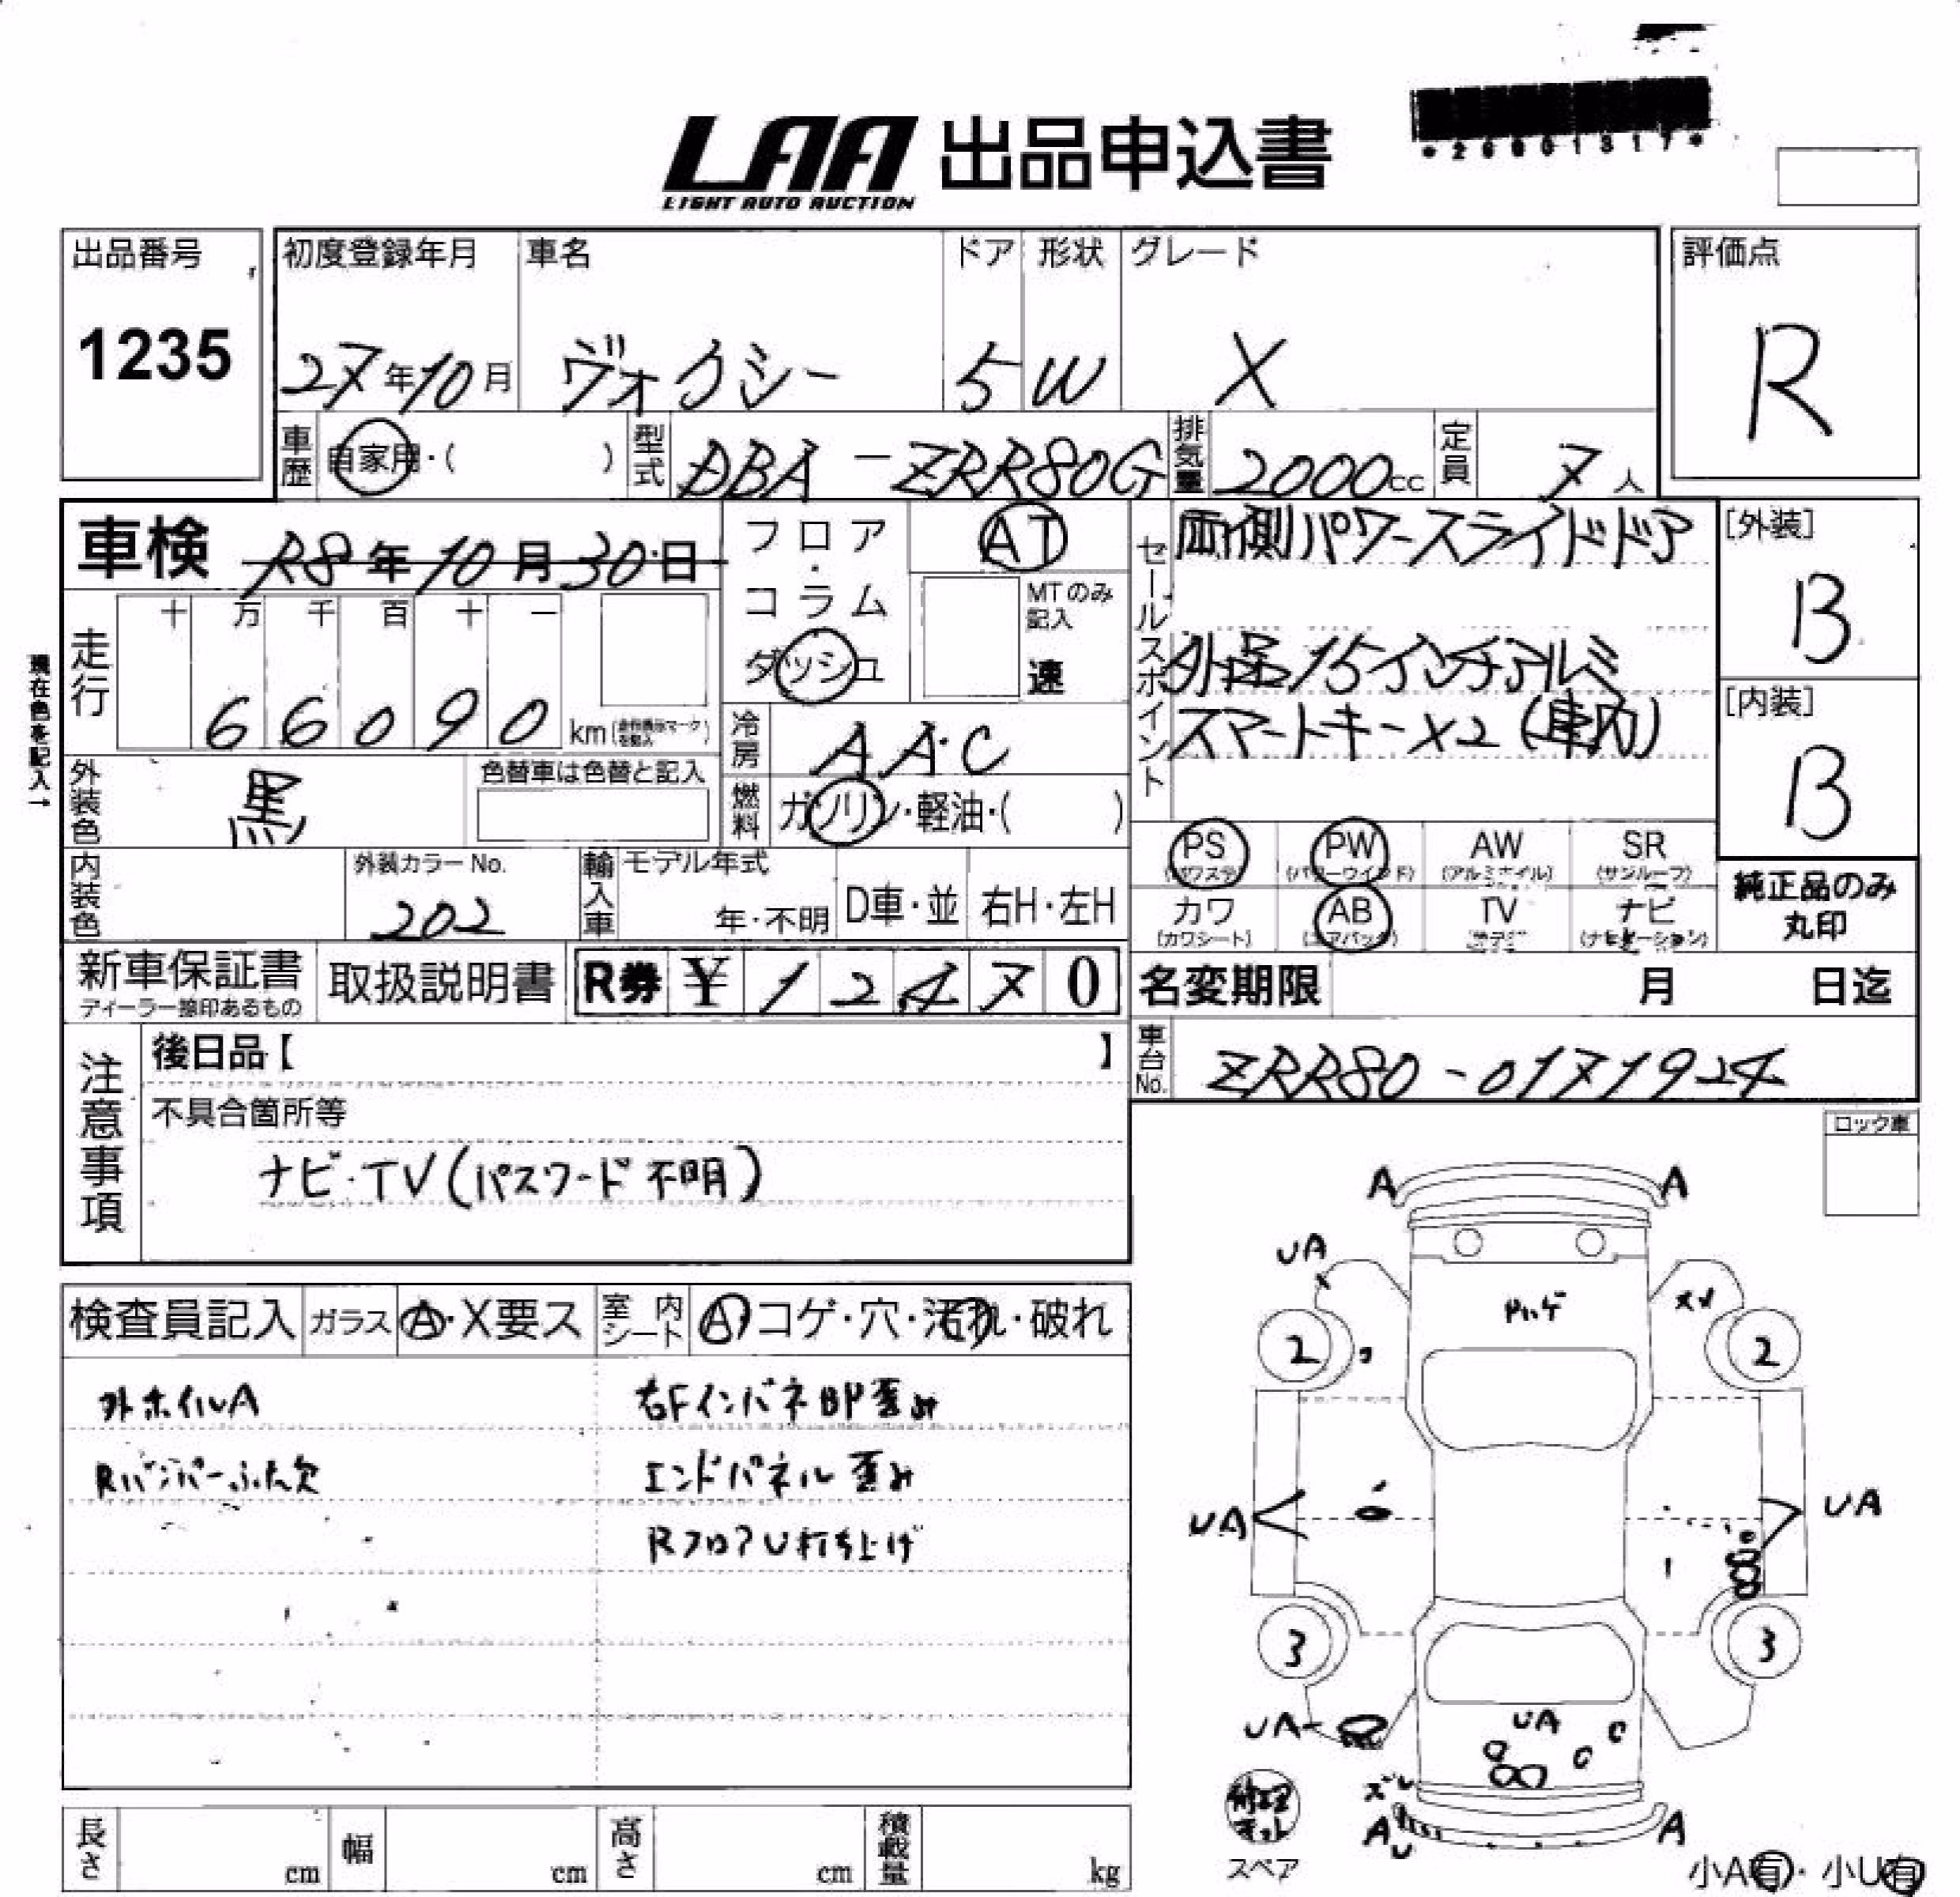 LAA 出品申込書
LIGHT AUTO AUCTION
*26001317*
出品番号
1235
初度登録年月
27年10月
車名
ヴォクシー
ドア
5
形状
W
グレード
X
評価点
R
車歴
自家用・( )
型式
DBA-ZRR80G
排気量
2000cc
定員
7人
車検 R8年10月30日
フロア・コラム
ダッシュ
AT
MTのみ記入
速
セールスポイント
両側パワースライドドア
外品15インチアルミ
スマートキーX2(車内)
[外装]
B
[内装]
B
現在色を記入→
走行
十 万 千 百 十 一
6 6 0 9 0 km
冷房
AAC
外装色
黒
色替車は色替と記入
燃料
ガソリン・軽油・( )
PS PW AW SR
(パワステ) (パワーウインド) (アルミホイル) (サンルーフ)
カワ AB TV ナビ
(カワシート) (エアバック) (ナビゲーション)
純正品のみ
丸印
内装色
外装カラーNo.
202
輸入車
モデル年式
年・不明
D車・並
右H・左H
新車保証書
ディーラー捺印あるもの
取扱説明書
R券 ¥12470
名変期限 月 日迄
車台No.
ZRR80-0171924
注意事項
後日品【 】
不具合箇所等
ナビ・TV(パスワード不明)
ロック車
検査員記入
ガラス
A・X要ス
室内シート
A コゲ・穴・汚れ・破れ
外ホイルA
Rバンパーふた欠
右Fインパネ部歪み
エンドパネル歪み
RフロアU打ち上げ
A A
UA
ハゲ
XX
2 2
UA UA
3 3
UA
UA
ズレ
A A
U
修理キット
スペア
小A有・小U有
長さ cm
幅 cm
高さ cm
積載量 kg